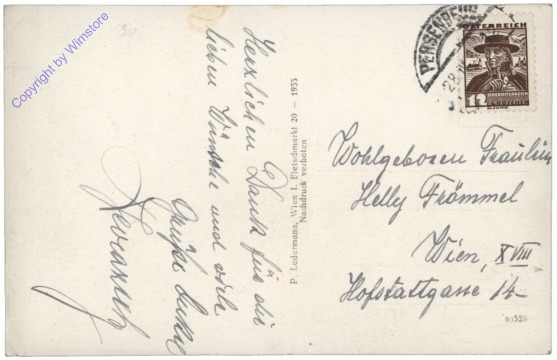 Copyright by Wimstore
Herzlichen Dank für die
lieben Wünsche und viele
Grüße
P. Ledermann, Wien I. Fleischmarkt 20 — 1935
Nachdruck verboten
PERSENBEUG
28
ÖSTERREICH
OBERÖSTERREICH
12 GROSCHEN
Wohlgeboren Fräulein
Helly Frömmel
Wien, XVIII
Hofstattgasse 14